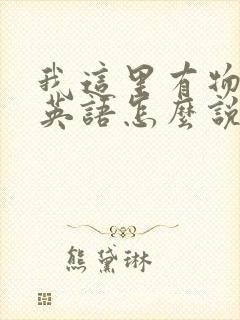 我這里有物
英語怎麼說
熊黛琳